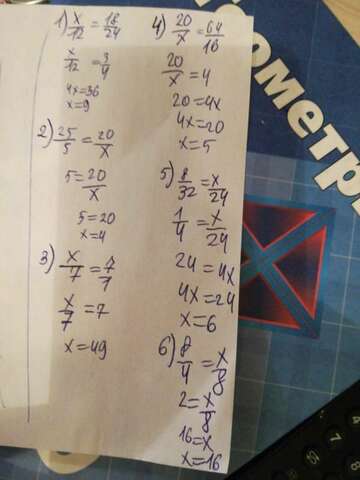 1) x/12 = 18/24
x/12 = 3/4
4x=36
x=9
2) 25/5 = 20/x
5 = 20/x
5=20
x=4
3) x/7 = 7/1
x/7 = 7
x=49
4) 20/x = 64/16
20/x = 4
20=4x
4x=20
x=5
5) 8/32 = x/24
1/4 = x/24
24=4x
4x=24
x=6
6) 8/4 = x/8
2 = x/8
16=x
x=16
ометри